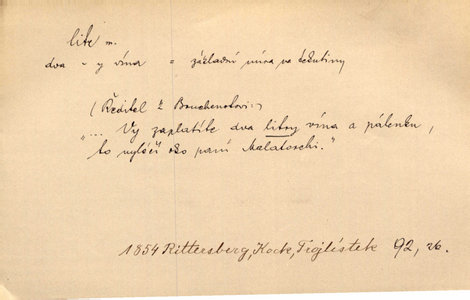 litr m.
dva - y vína = základní míra na tekutiny
(Ředitel k Bouchenotovi:)
"... Vy zaplatíte dva litry vína a pálenku,
to vyléčí oko paní Malatoschi."
1854 Rittersberg, Kock, Trojlístek 92, 26.